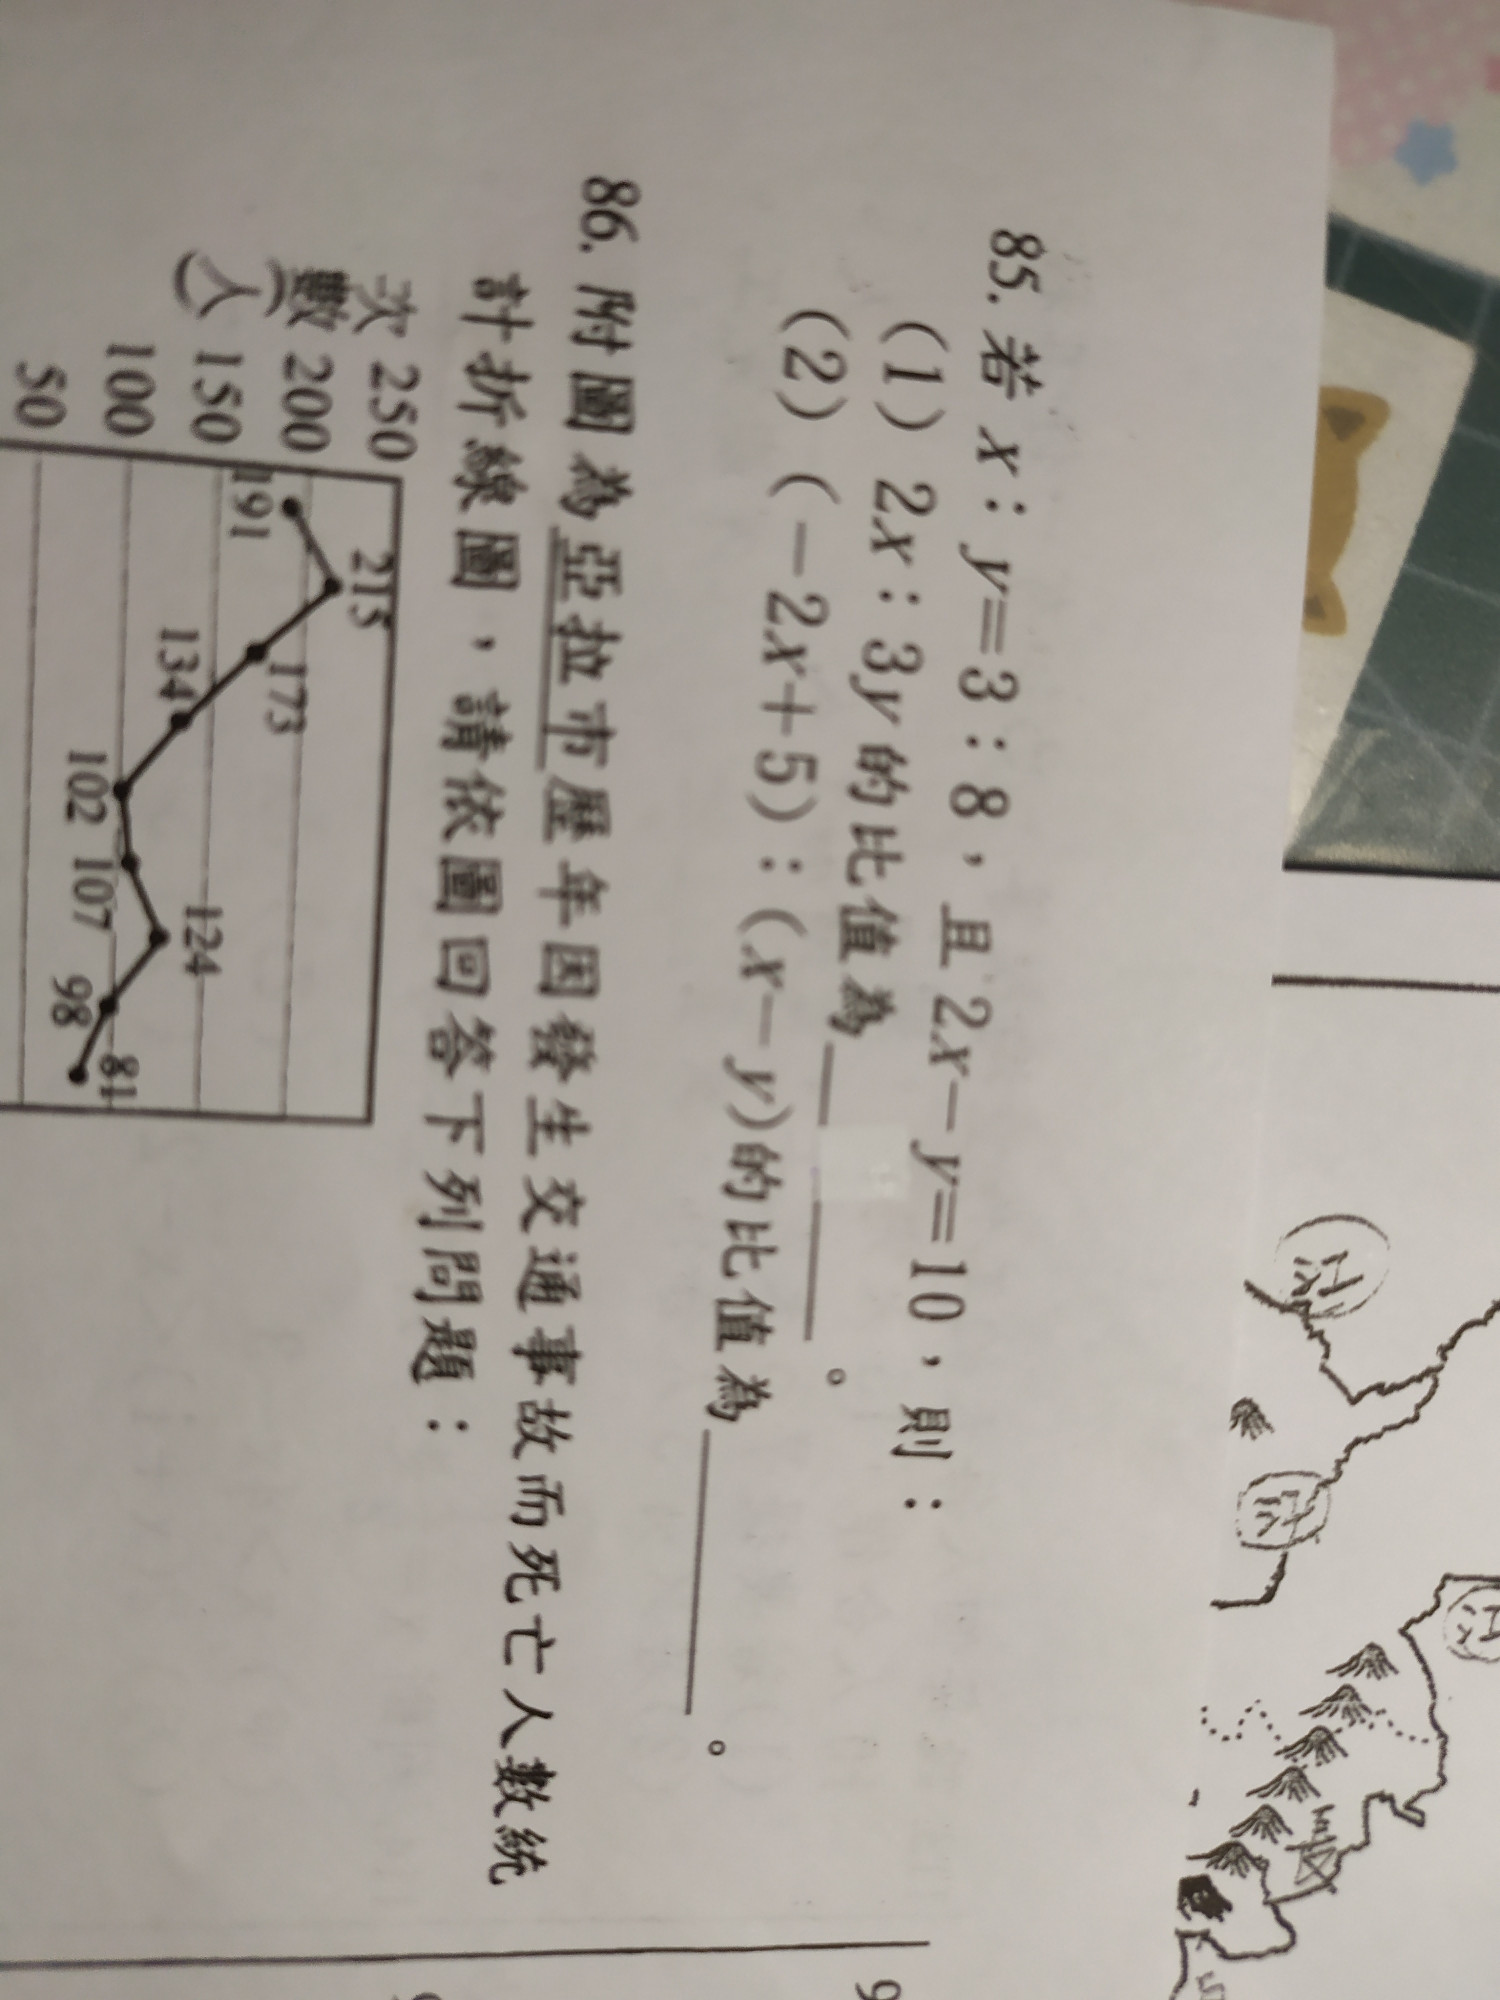 85. 若 x：y＝3：8，且 2x－y＝10，則：
(1) 2x：3y 的比值為________。
(2) (－2x＋5)：(x－y)的比值為________。
86. 附圖為亞拉市歷年因發生交通事故而死亡人數統
計折線圖，請依圖回答下列問題：
次數(人)
250
200
150
100
50
191
215
173
134
102
107
124
98
81